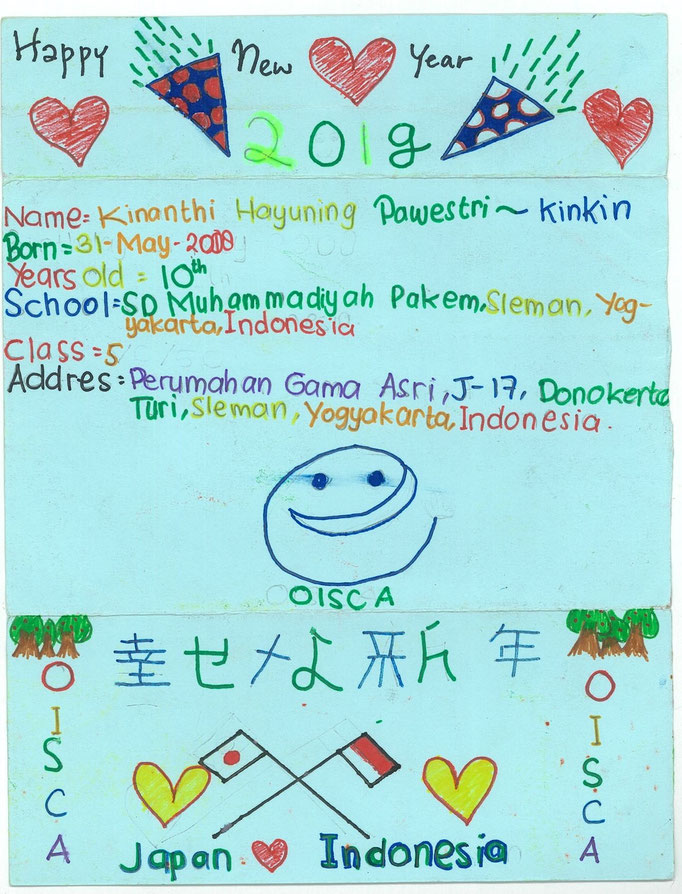 Happy New Year
2019
Name= Kinanthi Hayuning Pawestri ~ Kinkin
Born=31-May-
Years old = 10th
School=SD Muhammadiyah Pakem, Sleman, Yog-
yakarta, Indonesia
Class = 5
Addres = Perumahan Gama Asri, J-17, Donokerto
Turi, Sleman, Yogyakarta, Indonesia.
OISCA
幸せな新年
OISCA
OISCA
Japan Indonesia